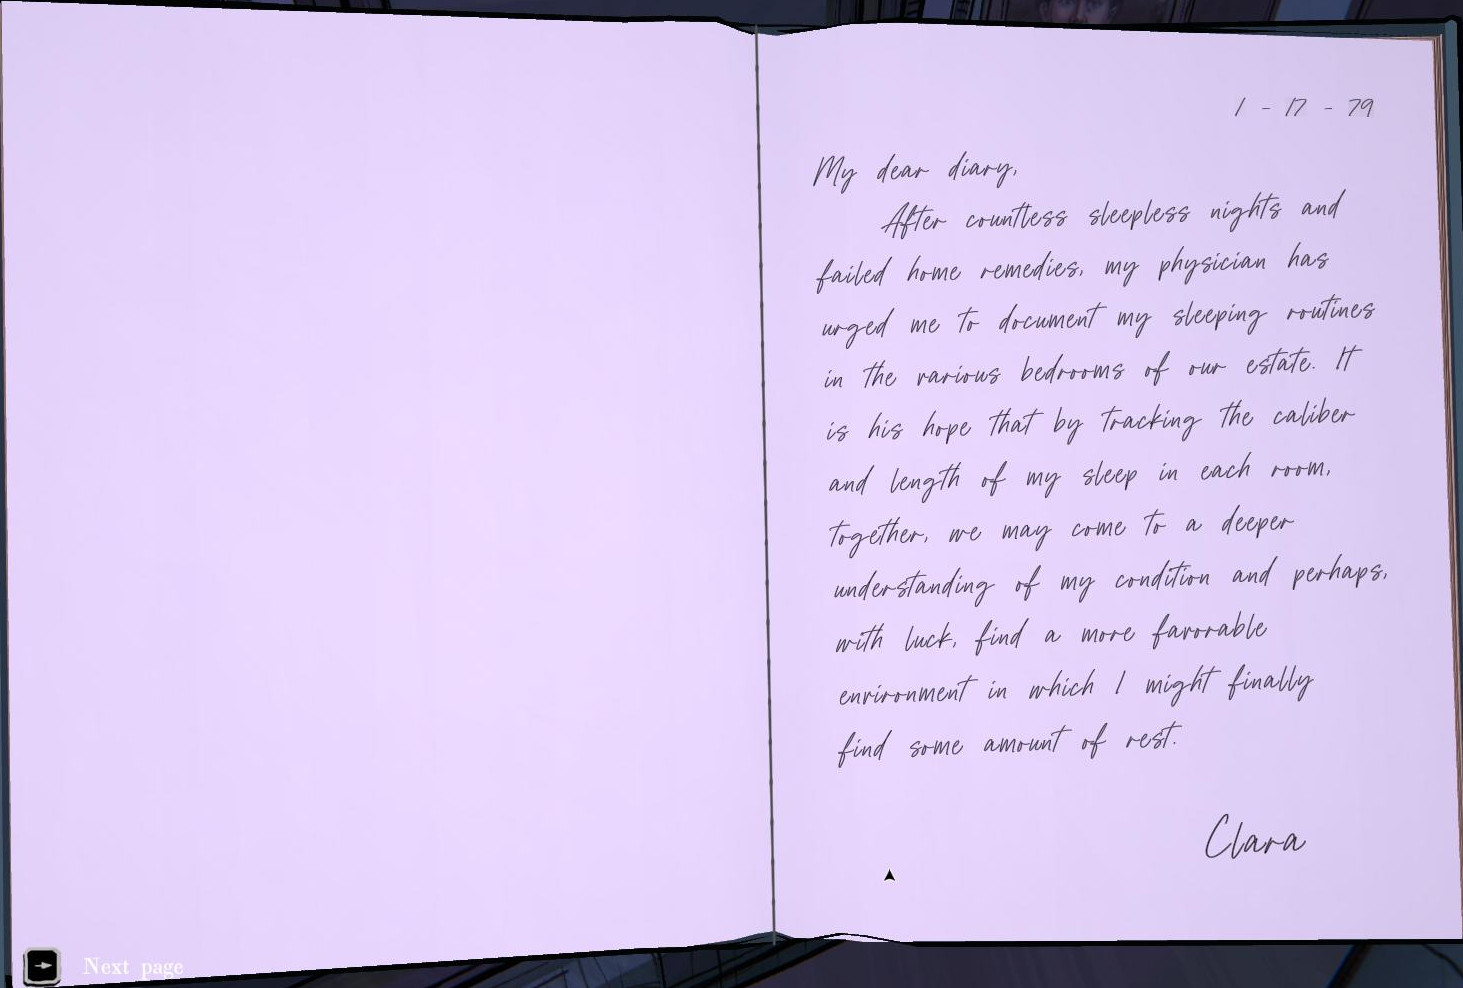 1 - 17 - 79
My dear diary,
After countless sleepless nights and
failed home remedies, my physician has
urged me to document my sleeping routines
in the various bedrooms of our estate. It
is his hope that by tracking the caliber
and length of my sleep in each room,
together, we may come to a deeper
understanding of my condition and perhaps,
with luck, find a more favorable
environment in which I might finally
find some amount of rest.
Clara
Next page